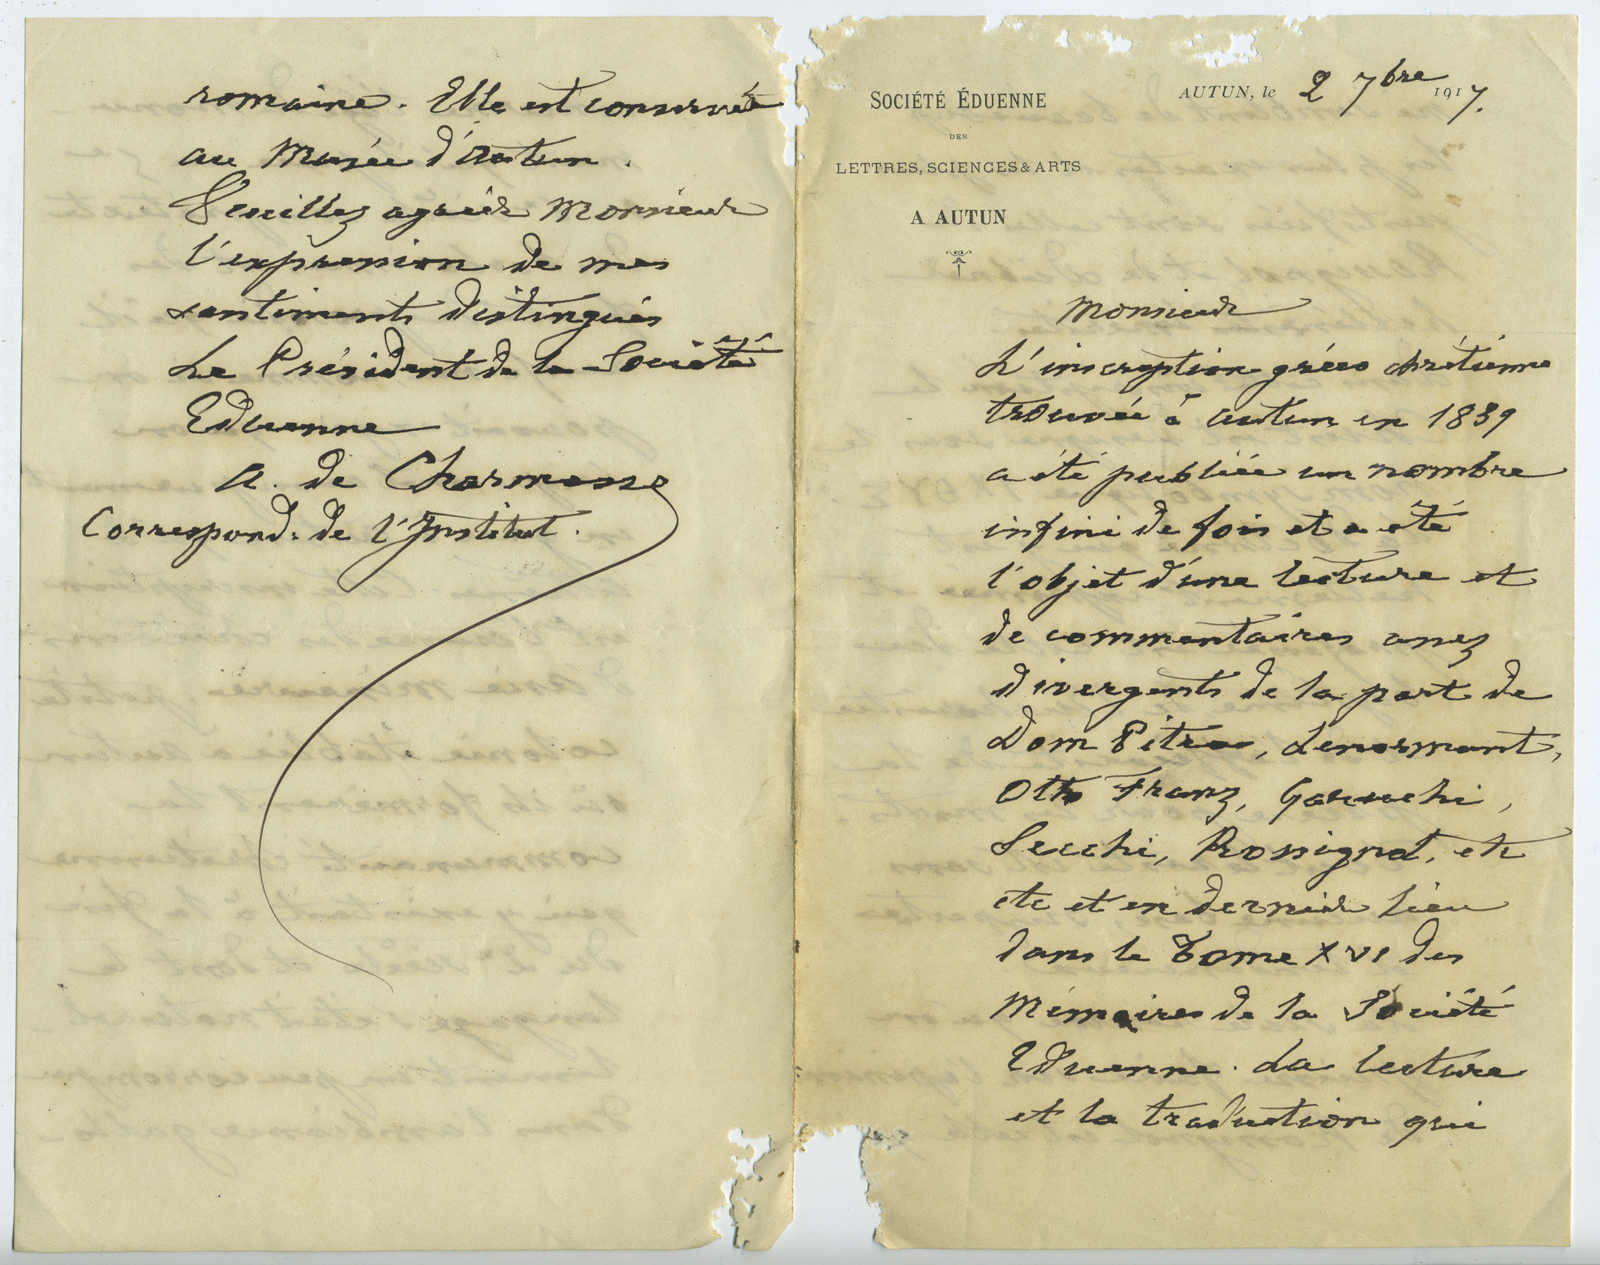 SOCIÉTÉ ÉDUENNE
DES
LETTRES, SCIENCES & ARTS
A AUTUN
AUTUN, le 2 7bre 1917.
Monsieur
L'inscription gréco chrétienne
trouvée à Autun en 1839
a été publiée un nombre
infini de fois et a été
l'objet d'une lecture et
de commentaires assez
divergents de la part de
Dom Pitra, Lenormant,
Otto Franz, Garucchi,
Secchi, Rossignol, etc
etc et en dernier lieu
dans le Tome XVI des
Mémoires de la Société
Eduenne. La lecture
et la traduction qui
romaine. Elle est conservée
au Musée d'Autun.
Veuillez agréer Monsieur
l'expression de mes
sentiments distingués
Le Président de la Société
Eduenne
A. de Charmasse
Correspond. de l'Institut.